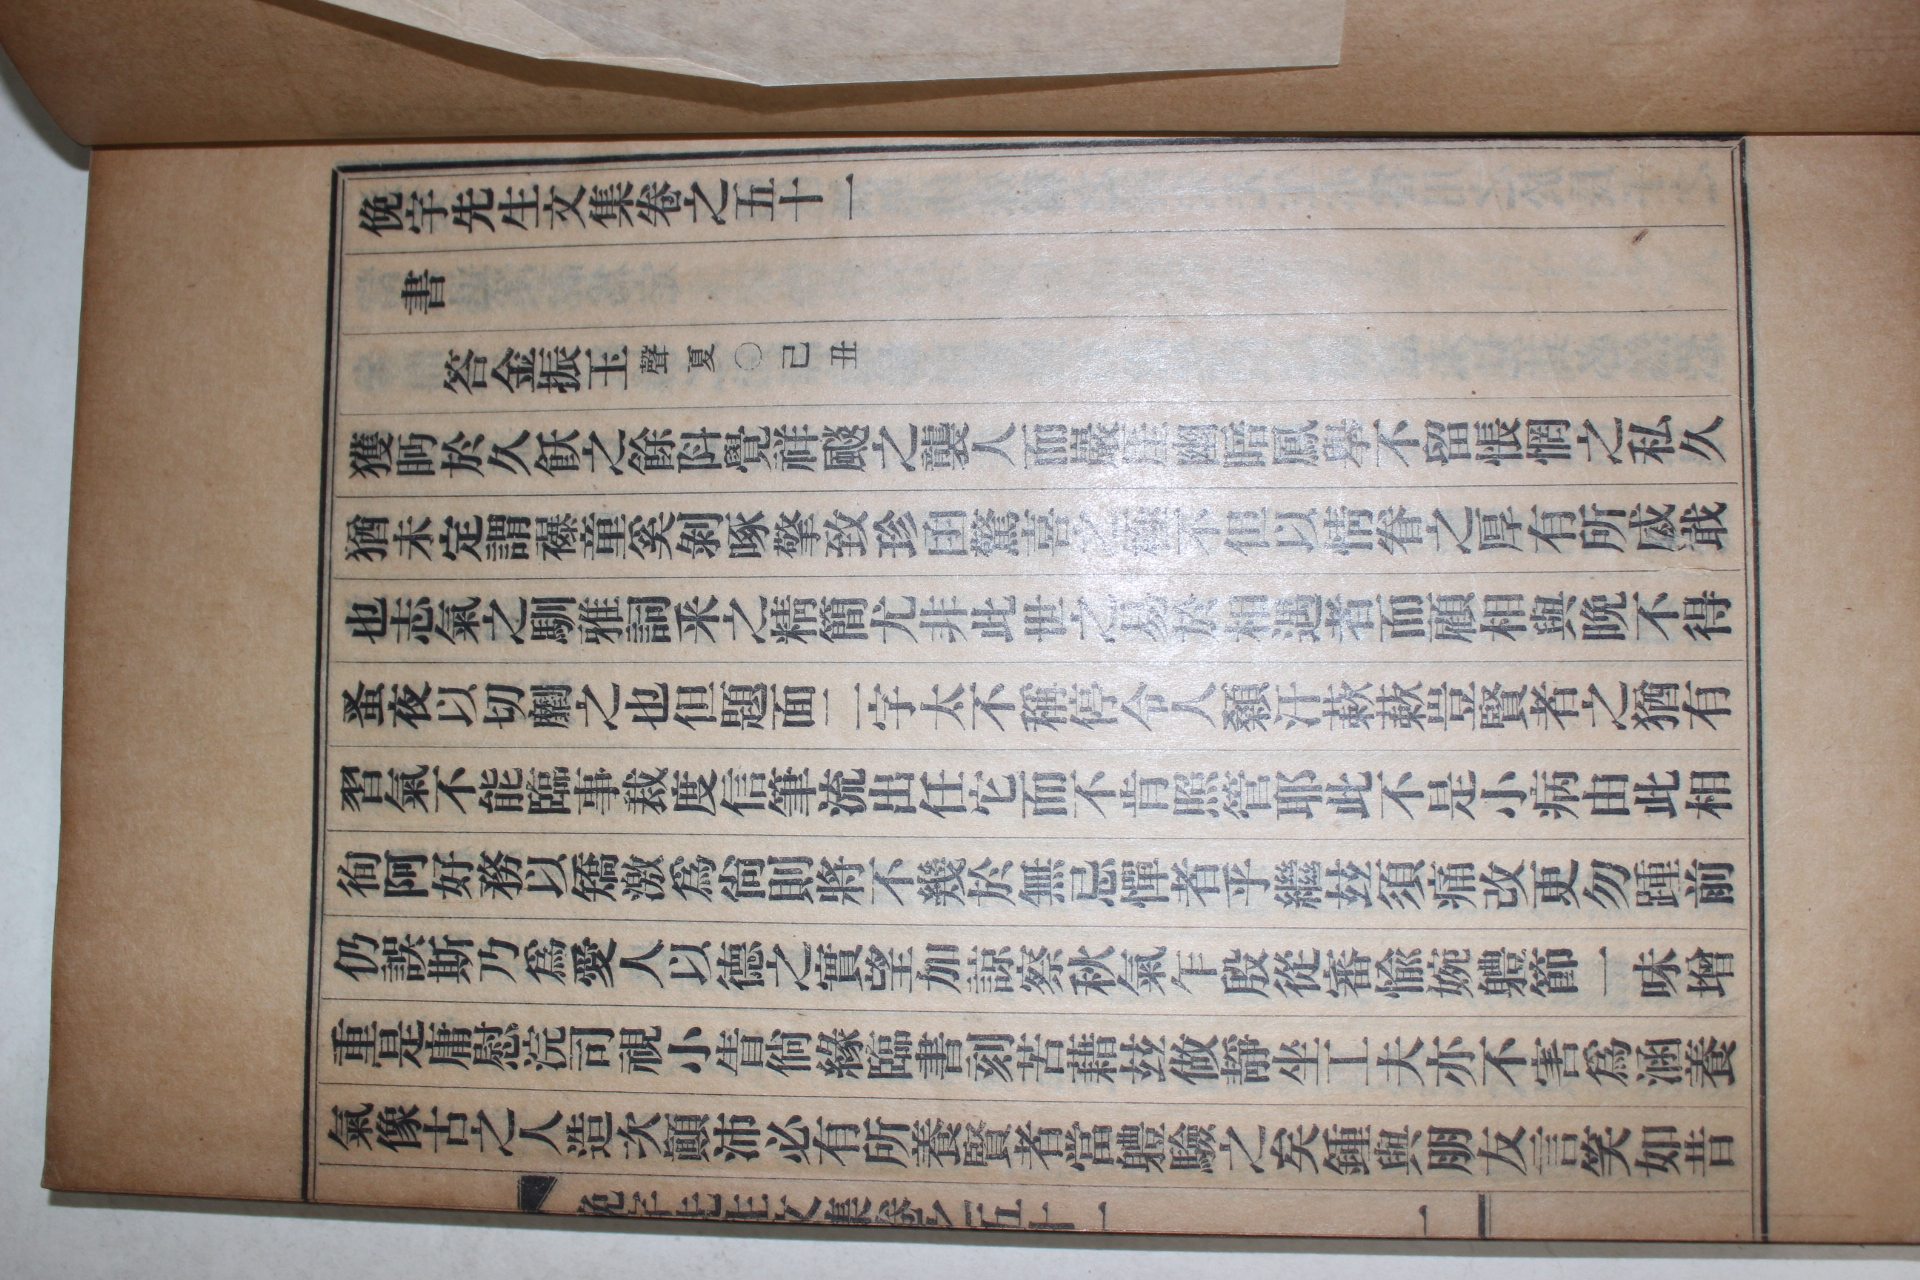 俛宇先生文集卷之五十一
書
答金振玉聲夏○己丑
獲眄於久飫之餘阧覺祥颷之襲人而巖崖幽暗鳳擧不留悵惘之私久
猶未定謂襮童奚剝啄擎致珍函驚喜之極不但以情眷之厚有所感戢
也志氣之馴雅詞采之精簡尤非此世之易於相遇者而願相與晩不得
蚤夜以切劘之也但題面二字太不稱停令人顙汗蔌蔌豈賢者之猶有
習氣不能臨事裁度信筆流出任它而不肯照管耶此不是小病由此相
徇阿好務以矯激爲尙則將不幾於無忌憚者乎繼玆須痛改更勿踵前
仍誤斯乃爲愛人以德之實望加諒察秋氣乍殷從審愉婉軆節一味增
重是庸慰浣司視小眚尙緣臨書刻苦藉玆做靜坐工夫亦不害爲涵養
氣像古之人造次顚沛必有所養賢者當軆驗之矣鍾與朋友言笑如昔
俛宇先生文集卷之五十一 一